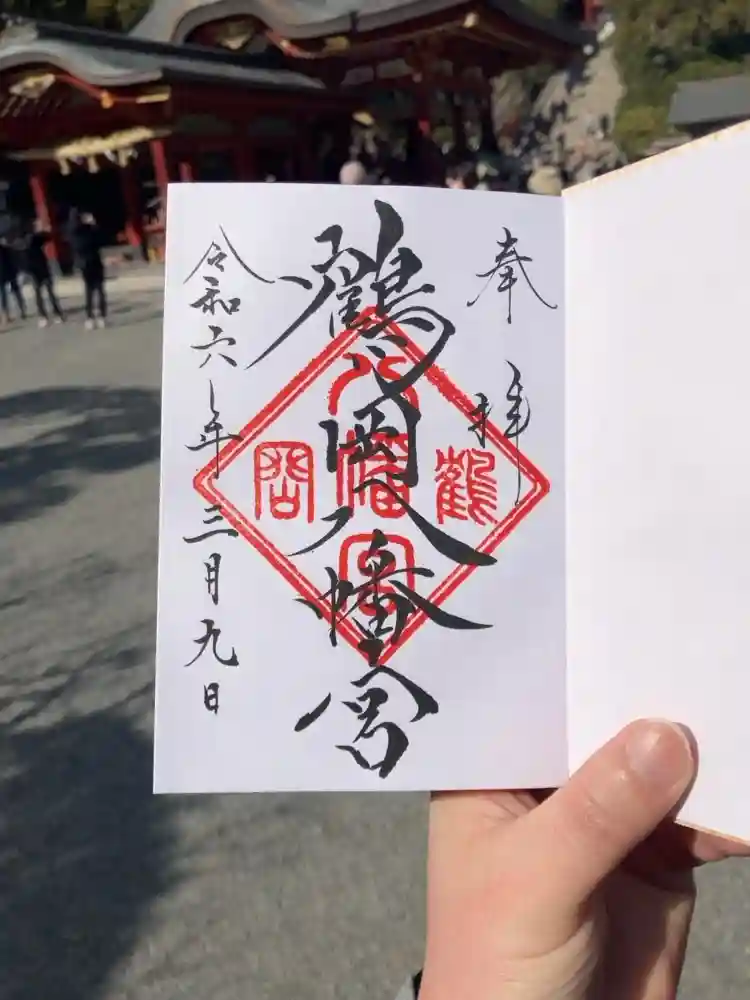 奉拝
鶴岡八幡宮
令和六年三月九日
鶴
八幡宮
岡